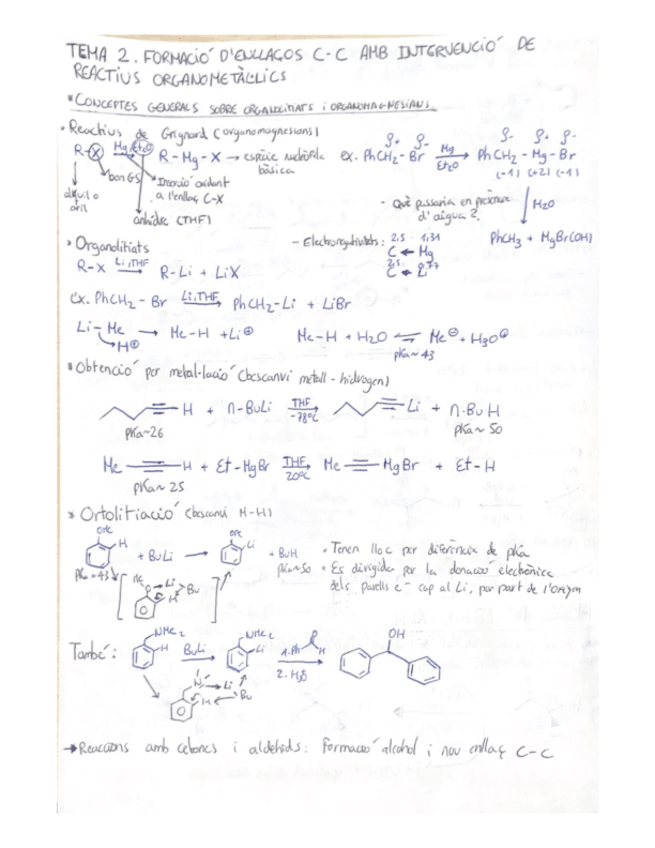 TEMA 2. FORMACIÓ D'ENLLAÇOS C-C AMB INTERVENCIÓ DE
REACTIUS ORGANOMETÀL·LICS
* CONCEPTES GENERALS SOBRE ORGANOLITIATS I ORGANOMAGNESIANS
· Reactius de Grignard (organomagnesians)
R-X Mg/Et2O R-Mg-X → espècie nucleòfila bàsica
bon GS
alquil o aril
Inserció oxidant a l'enllaç C-X
anhidre (THF)
ex. PhCH2-Br Mg Et2O PhCH2-Mg-Br
δ+ δ- δ- δ+ δ-
(-1) (+2) (-1)
- Què passaria en presència d'aigua?
H2O
PhCH3 + MgBr(OH)
- Electronegativitats: 2,5 1,31
C ← Mg
C ← Li
· Organolitiats
R-X Li,THF R-Li + LiX
ex. PhCH2-Br Li,THF PhCH2-Li + LiBr
Li-Me → Me-H + Li⊕
H⊕
Me-H + H2O ⇌ Me⊖ + H3O⊕
pKa~43
* Obtenció per metal·lació (bescanvi metall-hidrogen)
H + n-BuLi THF -78ºC Li + n-BuH
pKa~26 pKa~50
Me H + Et-MgBr THF 20ºC Me MgBr + Et-H
pKa~25
* Ortolitiació (bescanvi M-H)
OMe H + BuLi → OMe Li + BuH
pKa~43 pKa~50
Me O Li Bu H
· Tenen lloc per diferència de pKa
· Es dirigida per la donació electrònica
dels parells e- cap al Li, per part de l'Oxigen
També: NMe2 H BuLi NMe2 Li 1. Ph H 2. H3O OH
N Li
H Bu
→ Reaccions amb cetones i aldehids: Formació alcohol i nou enllaç C-C